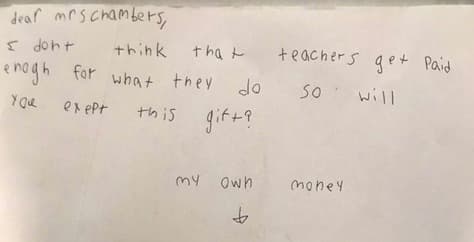 dear mrs chambers,
I dont think that teachers get paid
enogh for what they do so will
you exept this gift?
my own money
↓